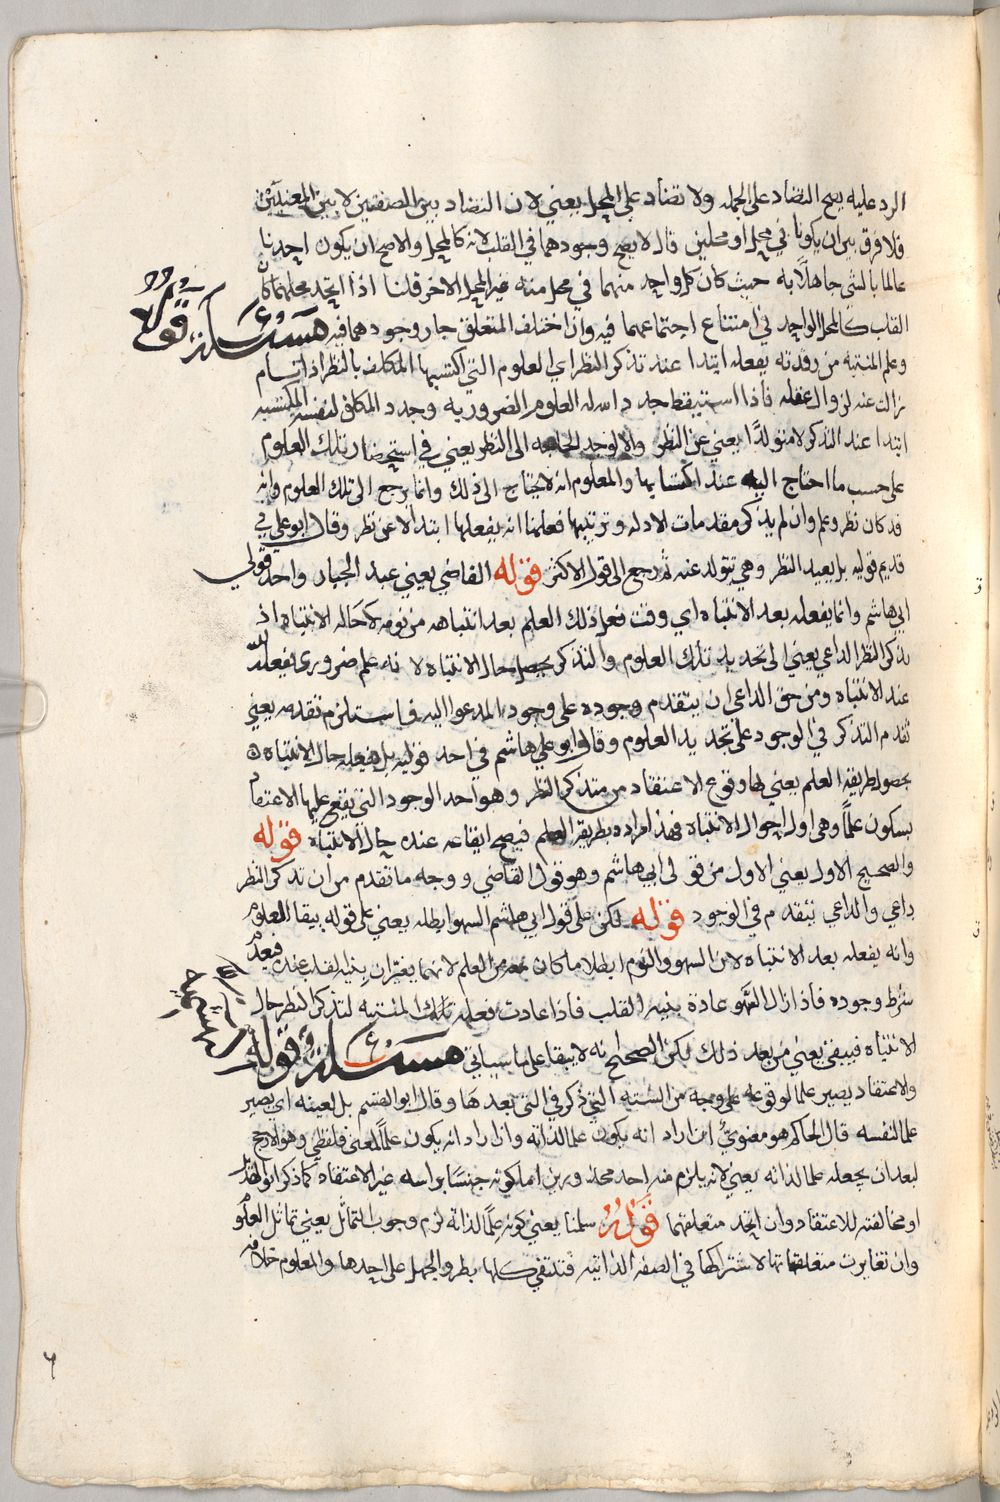 الرد عليه يصح التضاد على الجمله ولا تضاد على المحل يعني لان التضاد بين الصفتين لا بين المعنيين
فلا فرق بين ان يكونا في محل او محلين قال لا يصح وجودهما في القلب لانه كالمحل والاصح ان يكون احدنا
عالما بالشي جاهلا به حيث كان كل واحد منهما في محل منه غير المحل الاخر قلنا اذا اتحد محلهما كان
القلب كالمحل الواحد في امتناع اجتماعهما فيه وان اختلف المتعلق جاز وجودهما فيه مسئلة قوله
وعلم المنتبه من رقدته يفعله ابتدا عند تذكر النظر اي العلوم التي اكتسبها المكلف بالنظر اذا نام
زالت عنه لزوال عقله فاذا استيقظ جدد الله له العلوم الضروريه وجدد المكلف لنفسه المكتسبه
ابتدا عند التذكر لا متولدا يعني عن النظر والا لوجد الحاجه الى النظر يعني في استحضار تلك العلوم
على حسب ما احتاج اليه عند اكتسابها والمعلوم انه لا يحتاج الى ذلك وانما يرجع الى تلك العلوم وانه
قد كان نظر وعلم وان لم يذكر مقدمات الادله وترتيبها فعلمنا انه يفعلها ابتدا لا عن نظر وقال ابو علي في
قديم قوليه بل يعيد النظر وهي تتولد عنه ثم رجع الى قول الاكثر قوله القاضي يعني عبد الجبار واحد قولي
ابي هاشم وانما يفعله بعد الانتباه اي وقت فعل ذلك العلم بعد انتباهه من نومه لا حالة الانتباه اذ
تذكر النظر الداعي يعني الى تجديد تلك العلوم والتذكر يحصل حال الانتباه لانه علم ضروري يفعله الله
عند الانتباه ومن حق الداعي ان يتقدم وجوده على وجود المدعو اليه فاستلزم تقدمه يعني
تقدم التذكر في الوجود على تجديد العلوم وقال ابو علي هاشم في احد قوليه بل يفعله حال الانتباه
بحصول طريقة العلم يعني لها وقوع الاعتقاد من متذكر النظر وهو احد الوجوه التي يقع عليها الاعتقاد
بسكون علما وهي اول احوال الانتباه فهذا مراده بطريقة العلم فيصح ايقاعه عنده حال الانتباه قوله
والصحيح الاول يعني الاول من قولي ابي هاشم وهو قول القاضي ووجه ما تقدم من ان تذكر النظر
داعي والداعي يتقدم في الوجود قوله لكن على قول ابي هاشم السهو ابطله يعني على قوله ببقا العلوم
وانه يفعله بعد الانتباه لان السهو والنوم ابطلا ما كان من العلم لانهما يغيران بنية القلب عنده فيعدم
شرط وجوده فاذا زال السهو عادة بنية القلب فاذا عادت فعله المنتبه لتذكر النظر حال
الانتباه فيبقى يعني من بعد ذلك لكن الصحيح انه لا يبقا على ما سياتي مسئلة قوله
والاعتقاد يصير علما لوقوعه على وجه من الستة التي ذكر في التي بعدها وقال ابو القسم بل لعينه اي يصير
علما لنفسه قال الحاكم هو معنوي ان اراد انه يكون علما لذاته وان اراد انه يكون علما لمعنى فلفظي وهو الارجح
لبعد ان يجعله علما لذاته يعني لانه يلزم منه احد محذورين اما كونه جنسا براسه غير الاعتقاد كما ذكر ابو الهذيل
او مخالفته للاعتقاد وان اتحد متعلقهما قوله سلمنا يعني كونه علما لذاته لزم وجوب التماثل يعني تماثل العلوم
وان تغايرت متعلقاتها لاشتراكها في الصفه الذاتيه فتنتفي كلها بطرو الجهل على احدها والمعلوم خلافه
٦